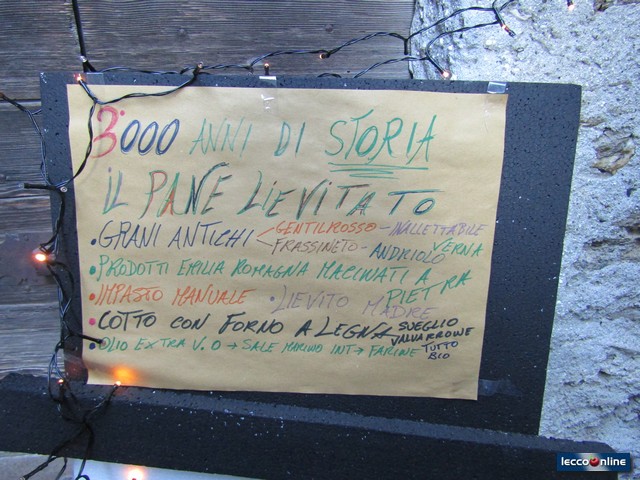 3000 ANNI DI STORIA
IL PANE LIEVITATO
•GRANI ANTICHI < GENTILROSSO - INALLETTABILE
FRASSINETO - ANDRIOLO VERNA
•PRODOTTI EMILIA ROMAGNA MACINATI A PIETRA
•IMPASTO MANUALE •LIEVITO MADRE
•COTTO CON FORNO A LEGNA SUEGLIO VALVARRONE
•OLIO EXTRA V.O → SALE MARINO INT → FARINE TUTTO BIO
leccoonline